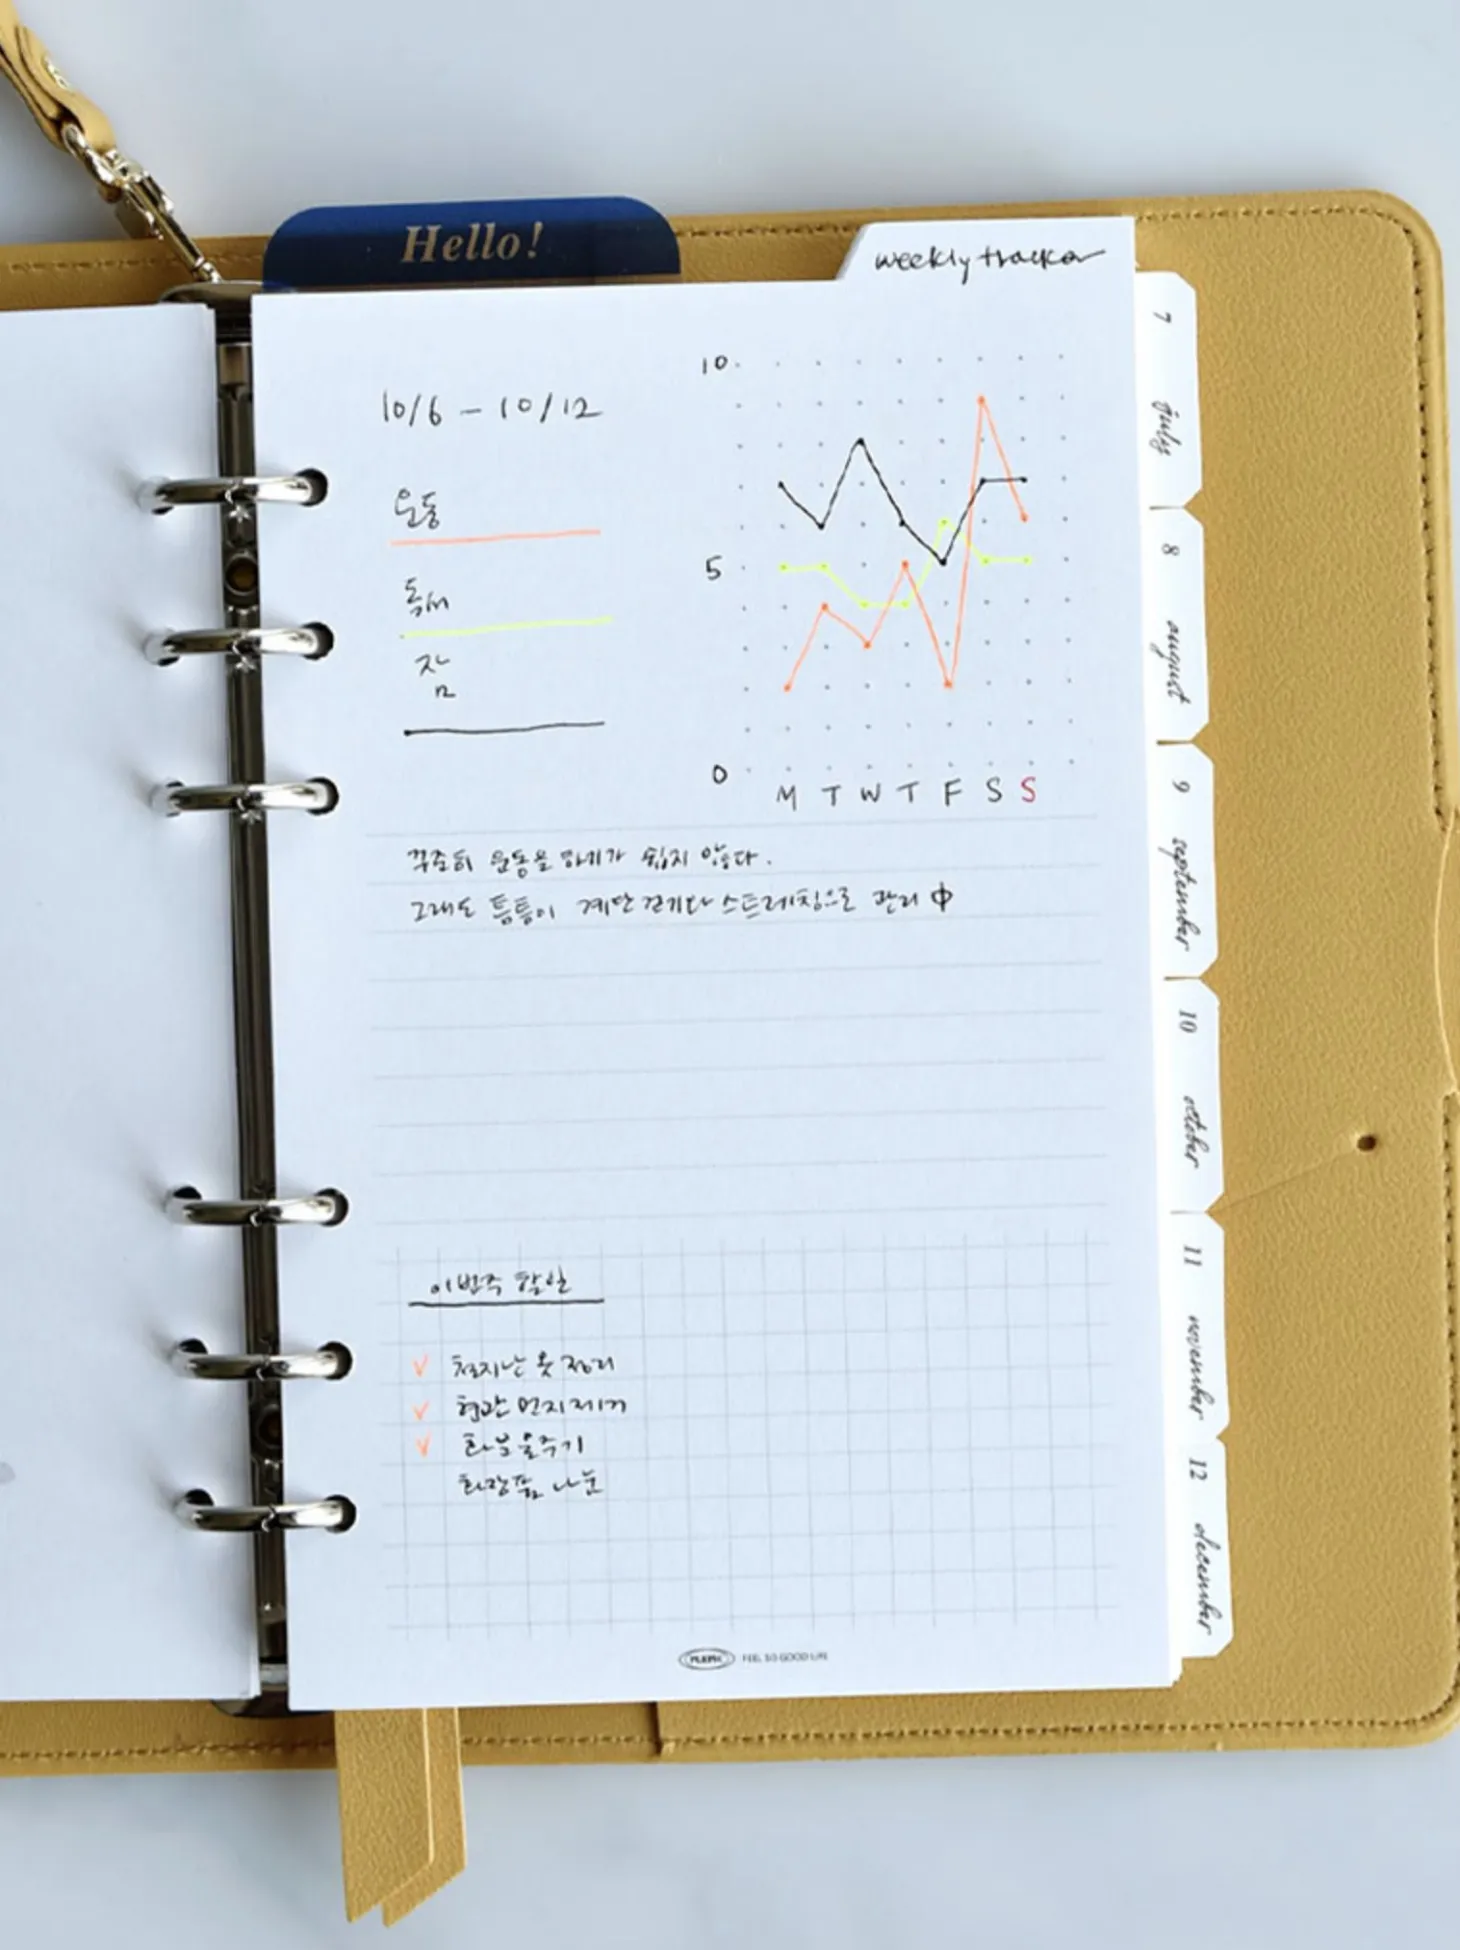 Hello!
weekly tracker
10/6 - 10/12
운동
독서
잠
10
5
0
M T W T F S S
꾸준히 운동을 하기가 쉽지 않다.
그래도 틈틈이 계단 걷기다 스트레칭으로 관리 中
이번주 할일
✓ 철지난 옷 정리
✓ 현관 먼지제거
✓ 화분 물주기
화장품 나눔
FEEL SO GOOD LIFE
7 july
8 august
9 september
10 october
11 november
12 december